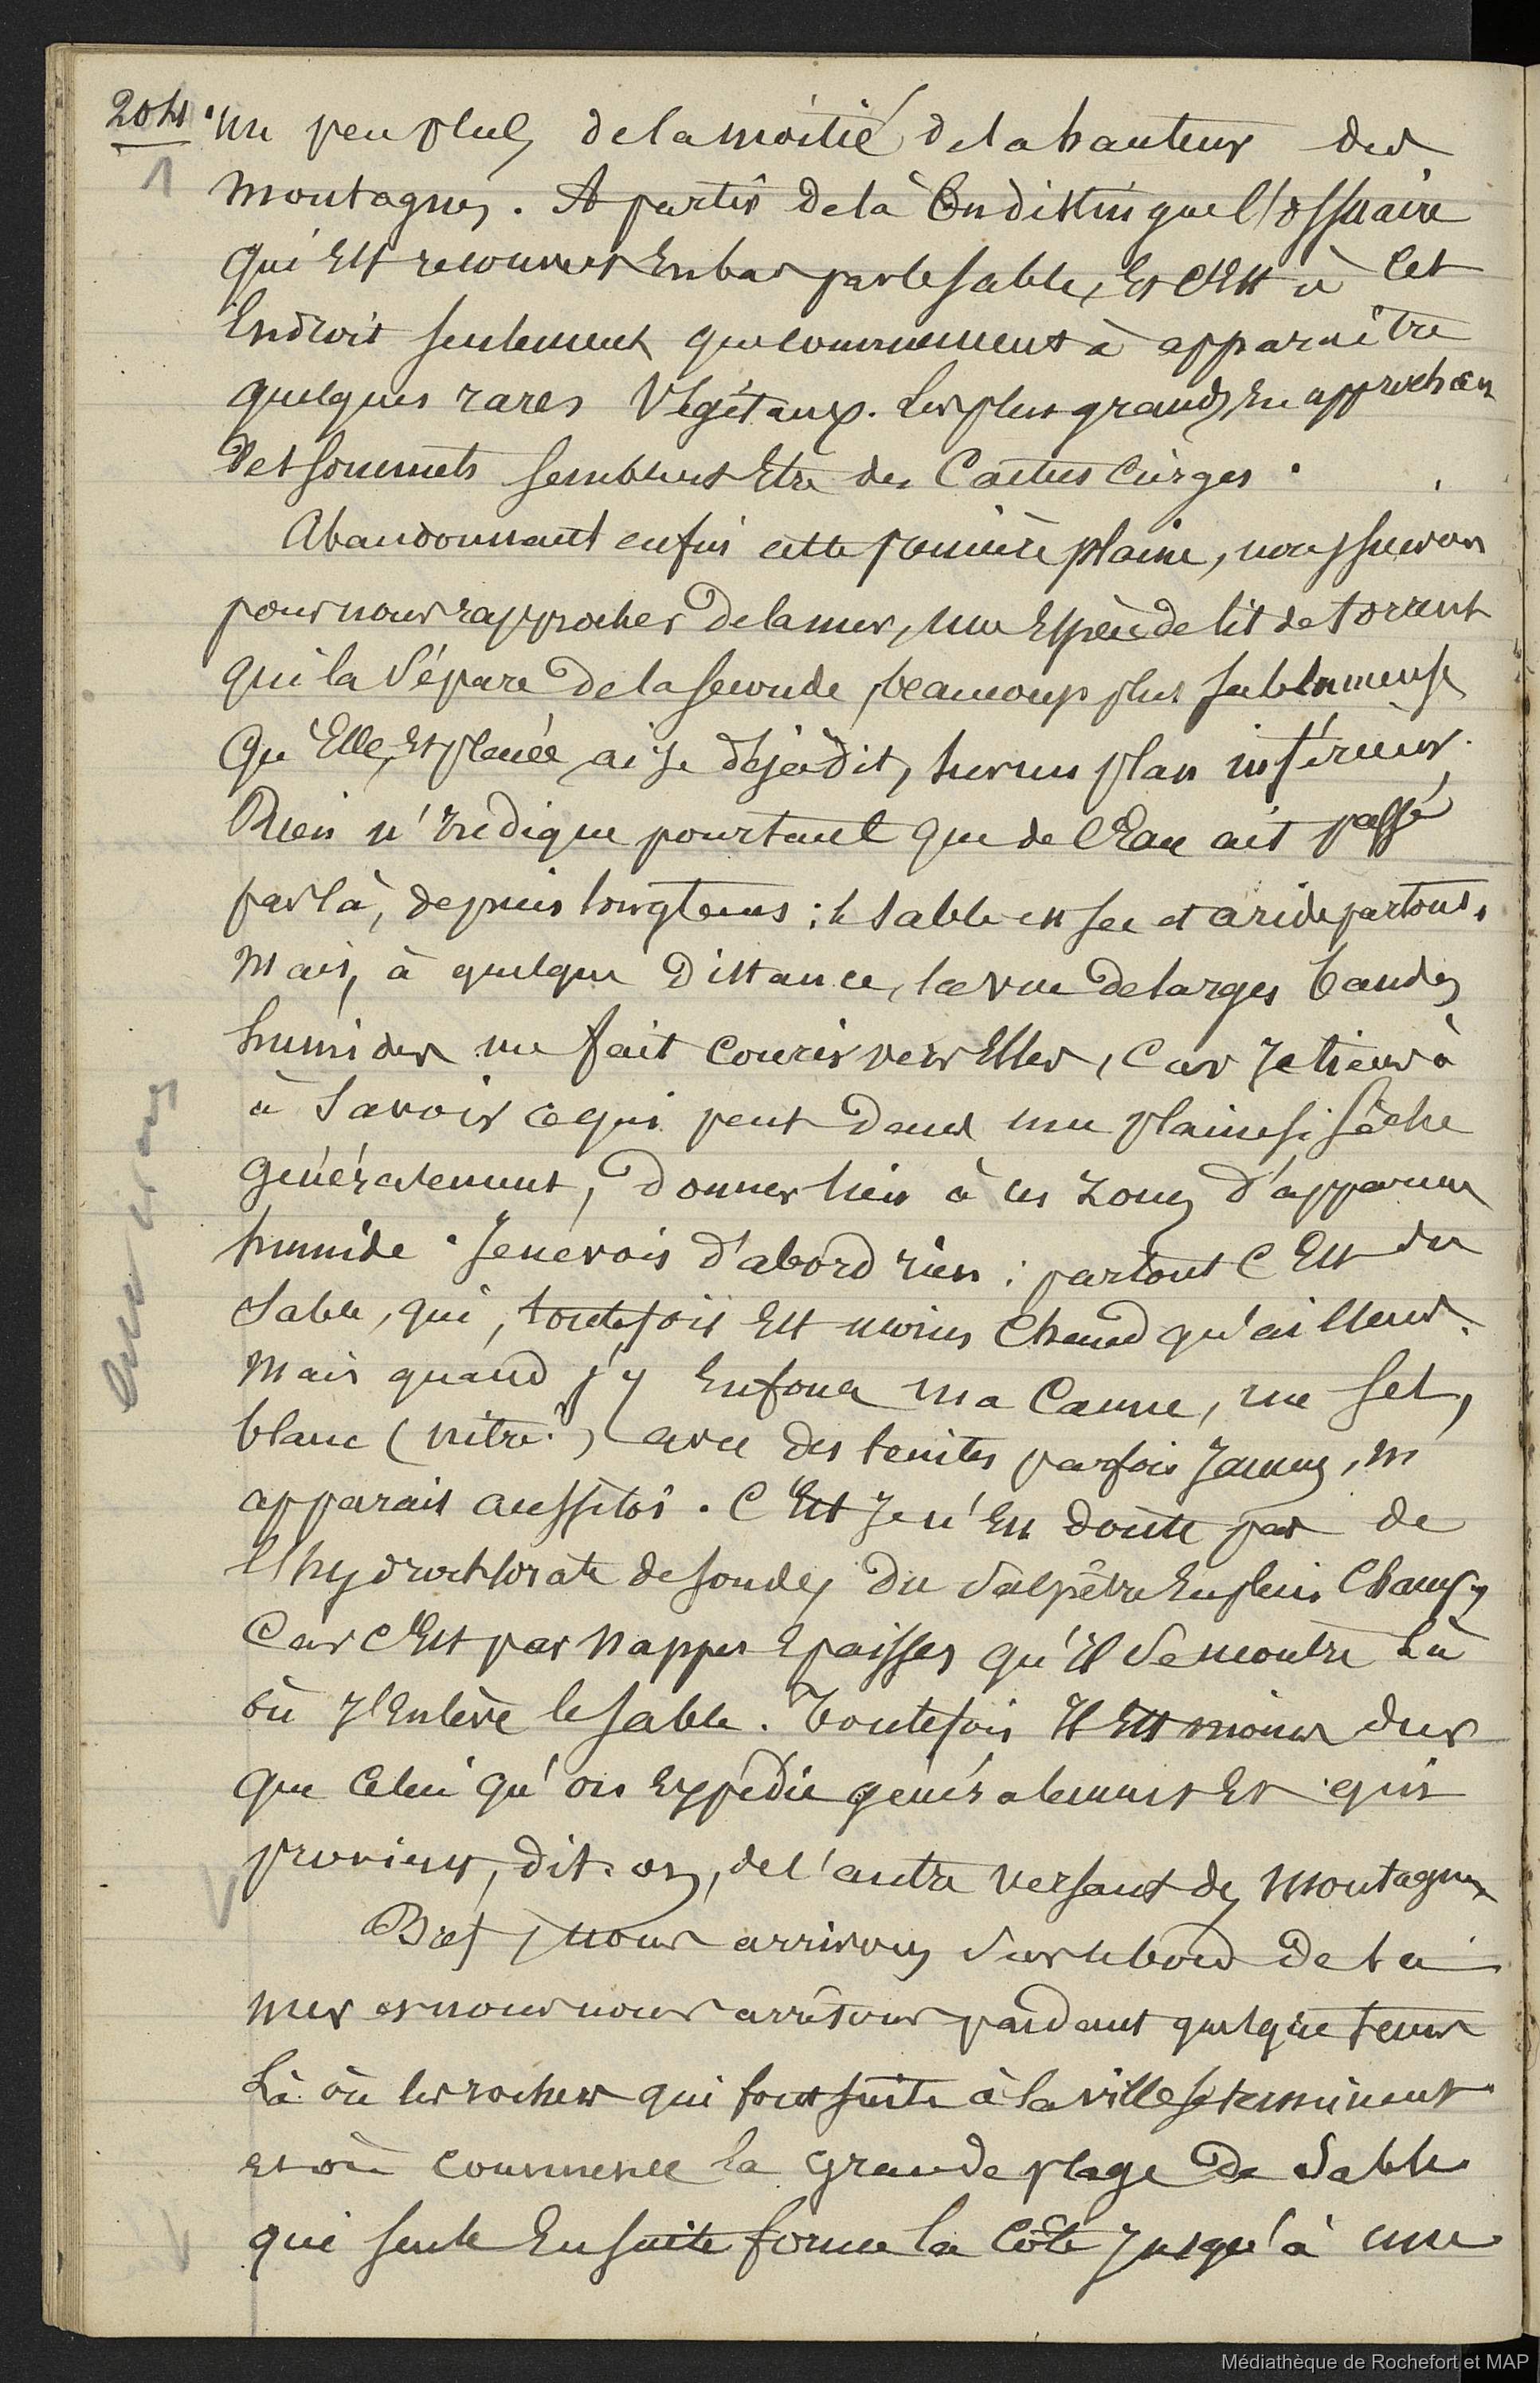 204
1
un peu plus de la moitié de la hauteur des
montagnes. A partir de là On distingue l'ossuaire
qui Est recouvert En bas par le sable, Et c'Est à cet
Endroit seulement que commencent à apparaître
quelques rares Végétaux. Les plus grands En approchan
des sommets semblent Etre des Cactus Cierges.
Abandonnant enfin cette première plaine, nous suivons
pour nous rapprocher de la mer, une Espèce de lit de torrent
qui la Sépare de la seconde, beaucoup plus sablonneuse
Qu'Elle, Et placée ai-je déjà dit, sur un plan inférieur.
Rien n'Indique pourtant que de l'Eau ait passé
par là, depuis longtems : le sable est sec et aride partout,
Mais, à quelque Distance, la vue de larges bandes
humides me fait courir vers Elles, Car Je tiens à
à Savoir ce qui peut Dans une plaine si sèche
généralement, Donner lieu à ces zones d'apparence
humide. Je ne vois d'abord rien : partout c'Est du
Sable, qui, toutefois Est moins Chaud qu'ailleurs.
Mais quand j'y Enfonce ma Canne, un sel,
blanc (nitre?) avec des teintes parfois Jaunes, m'
apparait aussitôt. C'Est Je n'En doute pas de
l'hydrochlorate de soude, Du Salpêtre En plein Champ,
Car c'Est par Nappes Epaisses qu'Il Se montre Là
où J'Enlève le sable. Toutefois Il Est moins dur
que Celui qu'on Expédie généralement Et qui
provient, dit-on, de l'autre versant des Montagnes
Bref, nous arrivons Sur le bord De la
mer et nous nous arrêtons pendant quelque tems
Là où les rochers qui font suite à la ville se terminent
et où commence la grande plage De Sable
qui seule Ensuite forme la Côte Jusqu'à une
Médiathèque de Rochefort et MAP